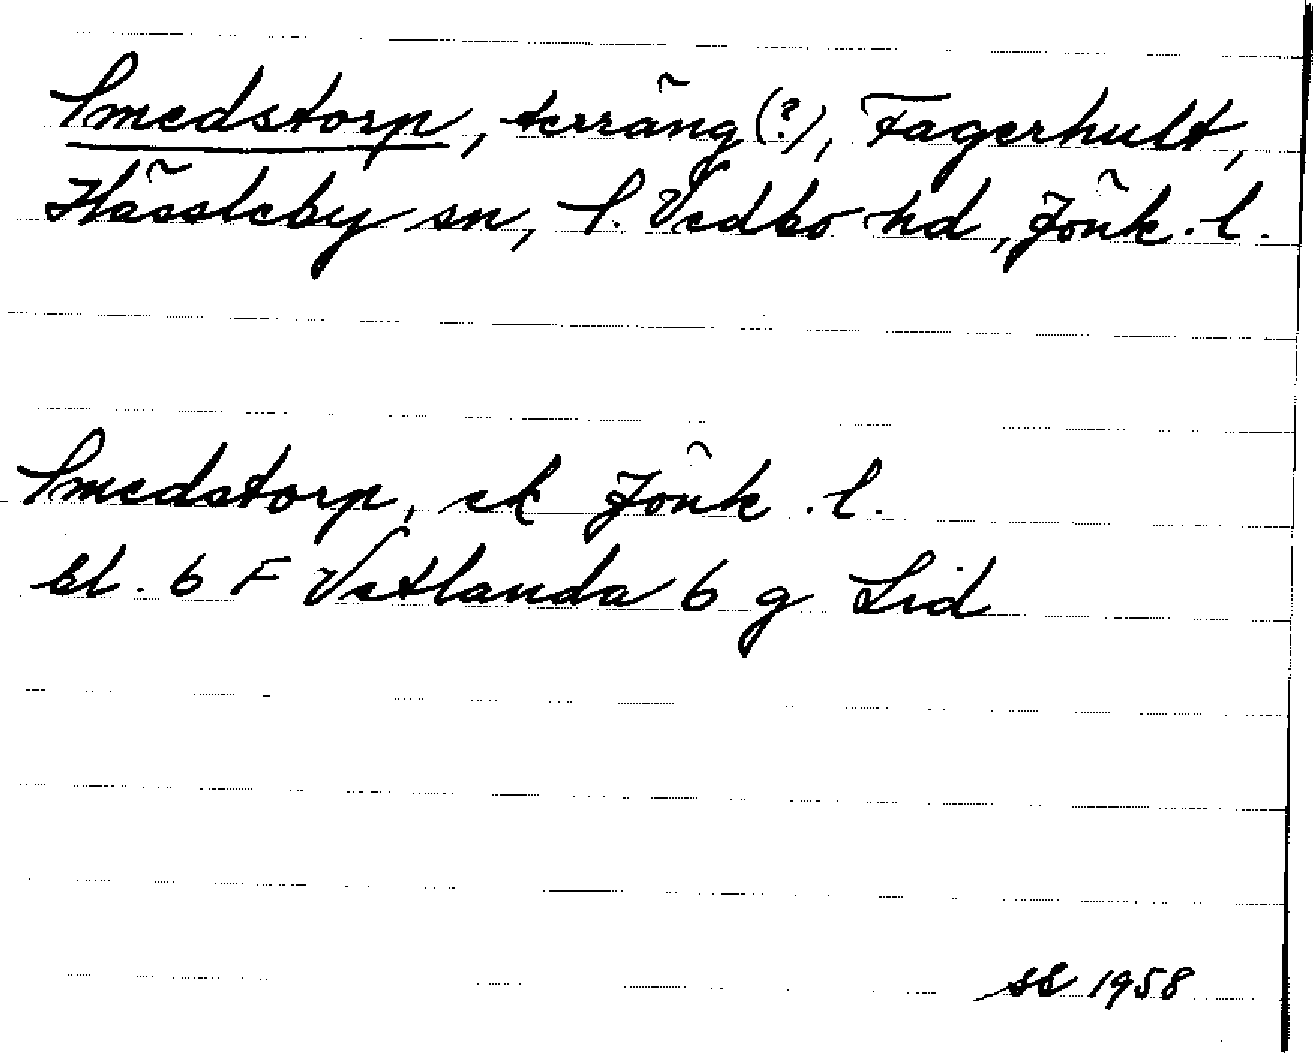 Smedstorp, terräng (?), Fagerhult,
Hässleby sn, S. Vedbo hd, Jönk. l.
Smedstorp, ek Jönk. l.
bl. 6 F Vetlanda 6 g Lid
SS 1958